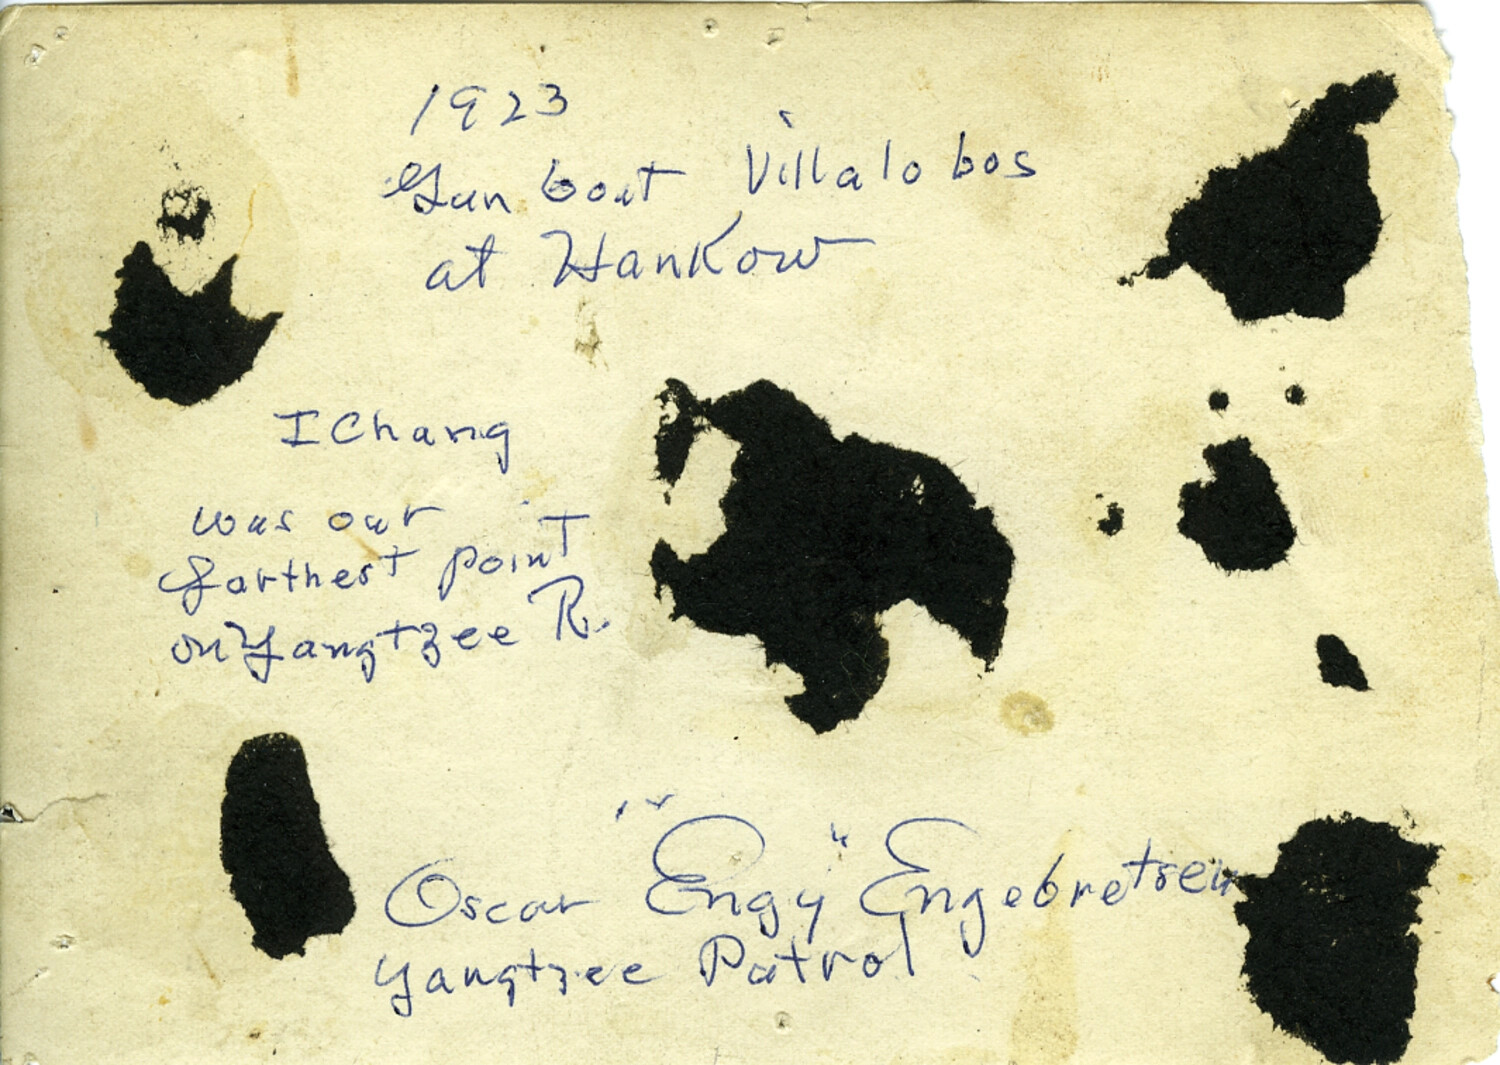 1923
Gun boat Villalobos
at HanKow
IChang
was our
farthest point
on Yangtzee R.
Oscar "Engy" Engebretsen
Yangtzee Patrol